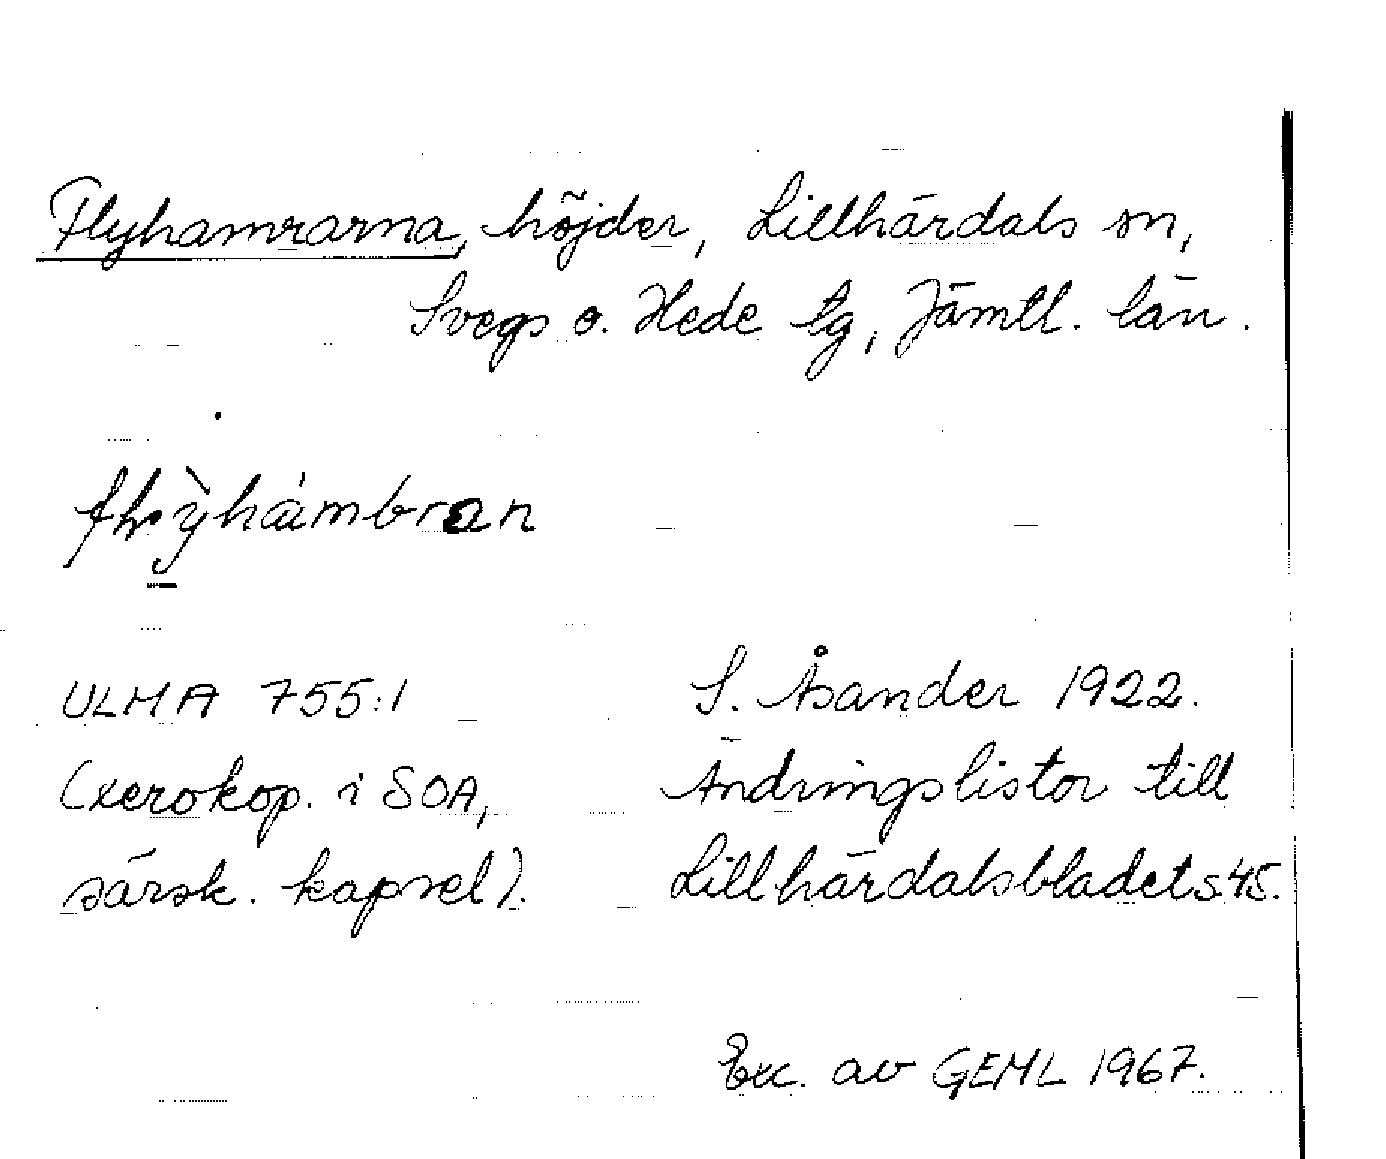 Flyhamrarna, höjder, Lillhärdals sn,
Svegs o. Hede tg, Jämtl. län.
ULMA 755:1
S. Åsander 1922.
(xerokop. i SOA,
Ändringslistor till
särsk. kapsel).
Lillhärdalsbladet s 45.
Exc. av GEML 1967.